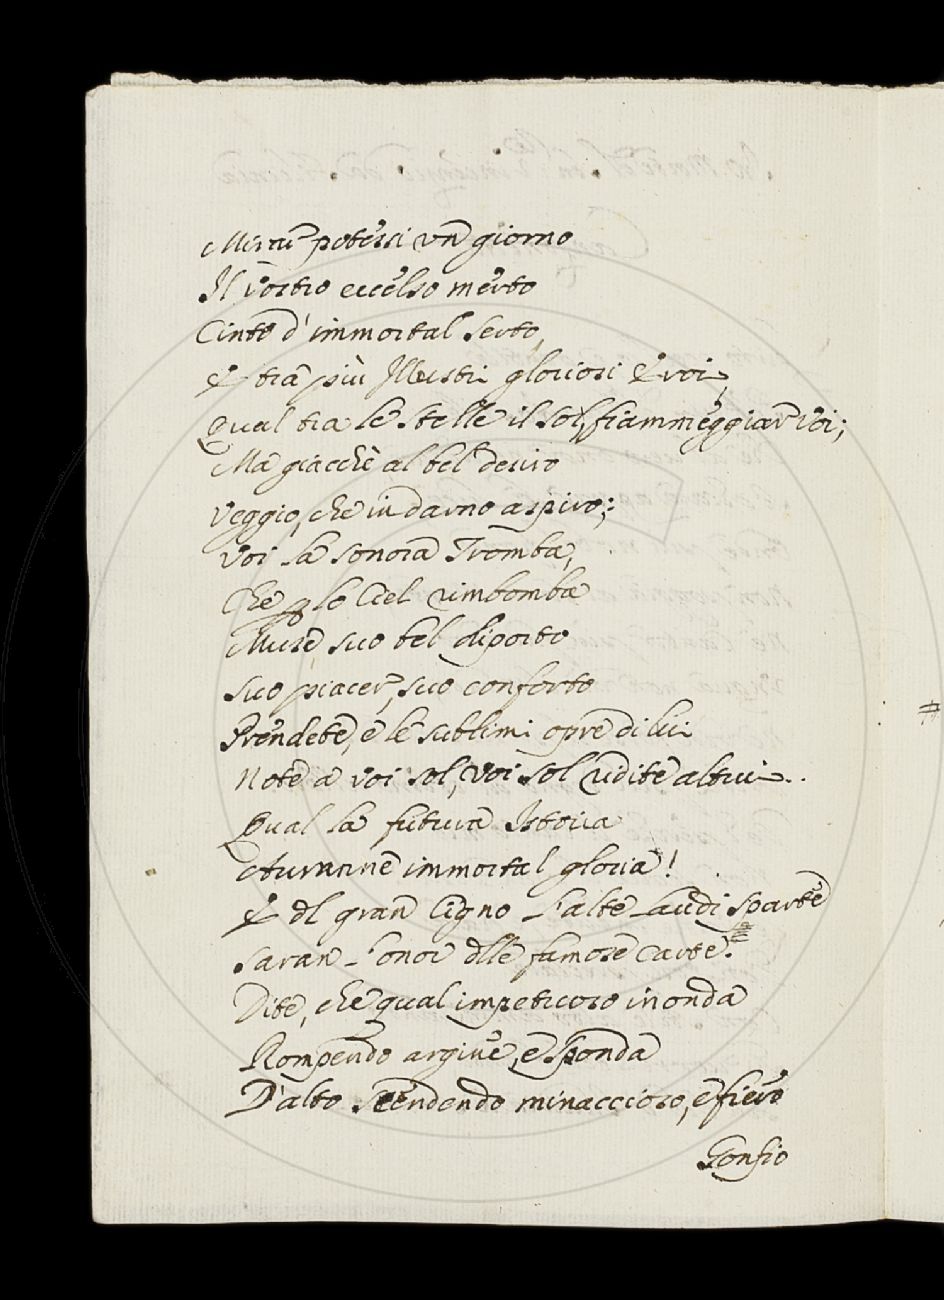 Mirar potessi un giorno
Il vostro eccelso merto
Cinto d'immortal serto,
E tra più Illustri gloriosi Eroi,
Qual tra le stelle il sol, fiammeggiar voi;
Ma giacchè al bel desiro
Veggio, che indarno aspiro;
Voi la sonora Tromba,
Che p lo Ciel rimbomba
Muse suo bel diporto
suo piacer, suo conforto
Prendete, e le sublimi opre di lui
Note a voi sol, voi sol udite altrui.
Qual la futura Istoria
Avranne immortal gloria!
E dl gran Cigno l'alte laudi sparte
saran l'onor dlle famose carte.
Dite, che qual impetuoso inonda
Rompendo argine, e sponda
D'alto scendendo minaccioso, e fiero
Gonfio